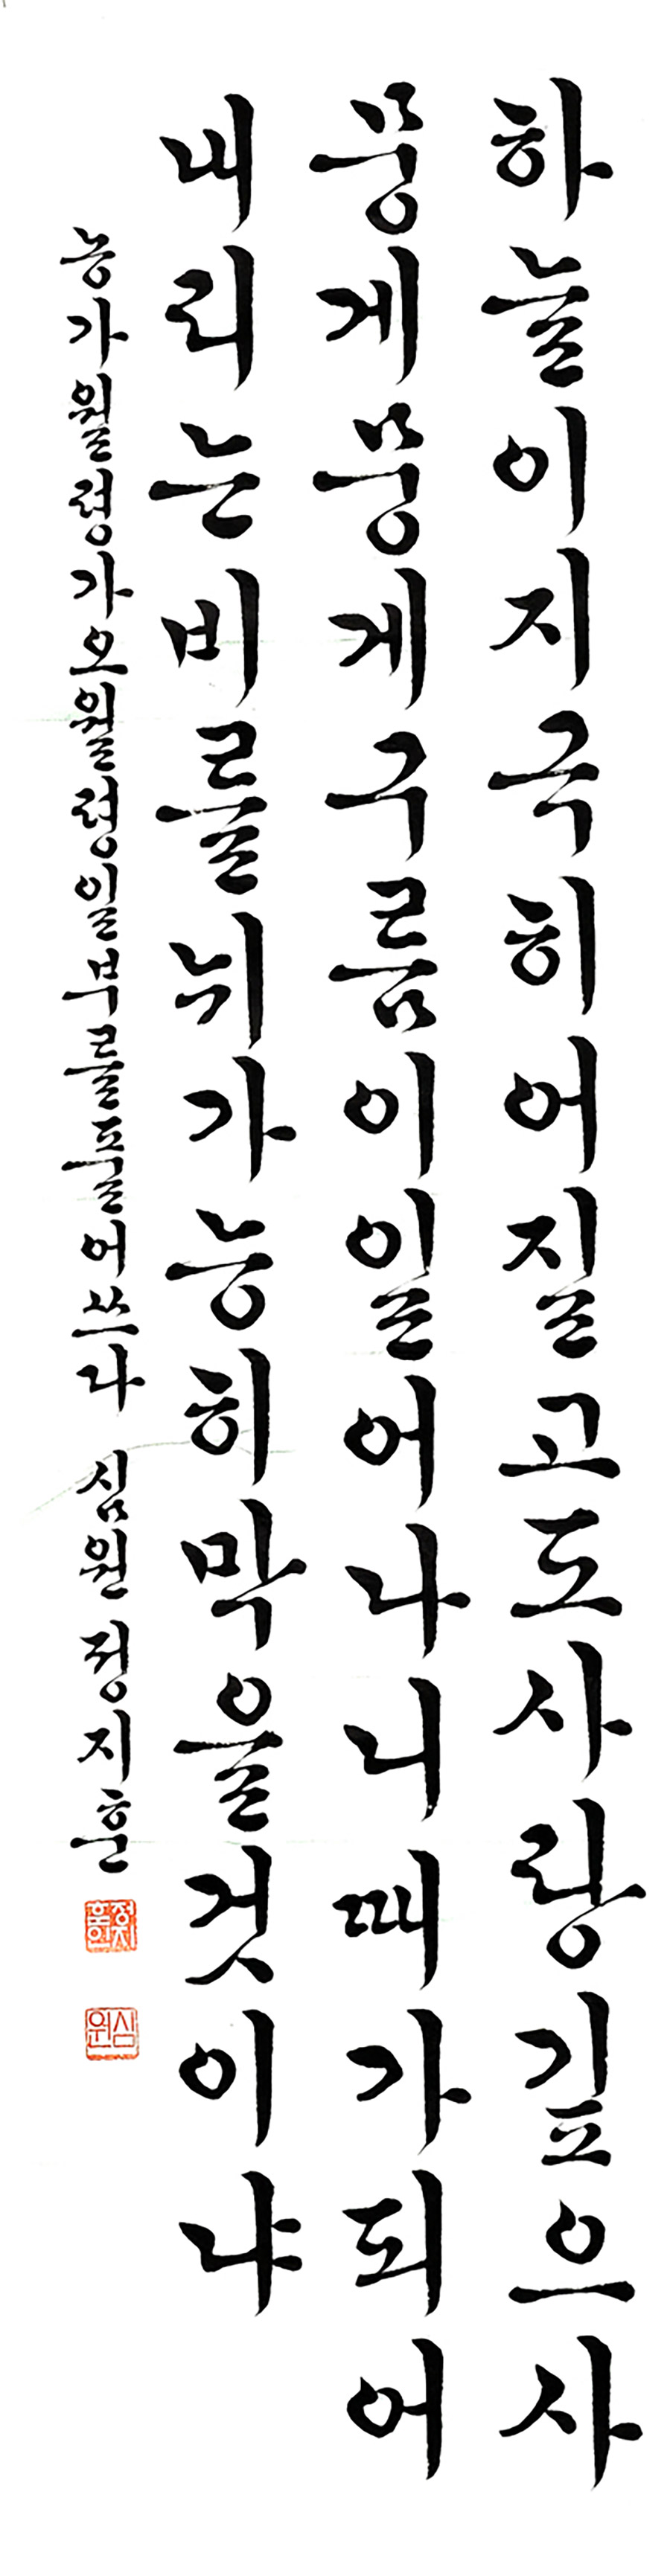 하늘이지극히어질고도사랑깊으사
뭉게뭉게구름이일어나니때가되어
내리는비를뉘가능히막을것이냐
농가월령가오월령일부를풀어쓰다 심원 정지훈
정지훈
심원